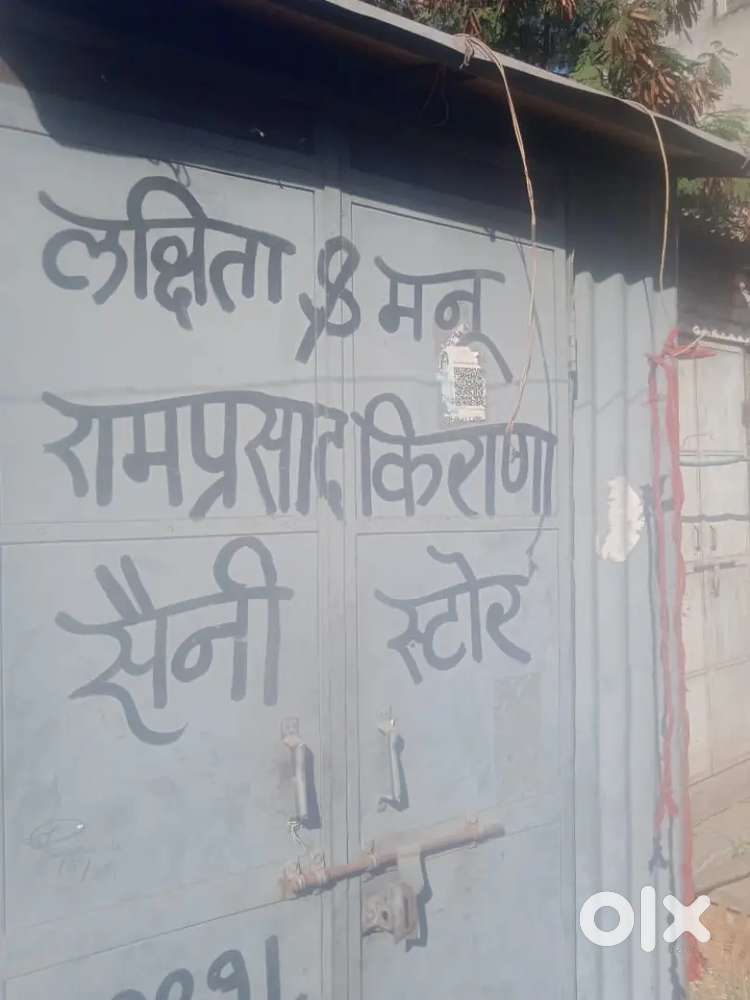 लक्षिता & मनू
रामप्रसाद किराणा
सैनी स्टोर
olx